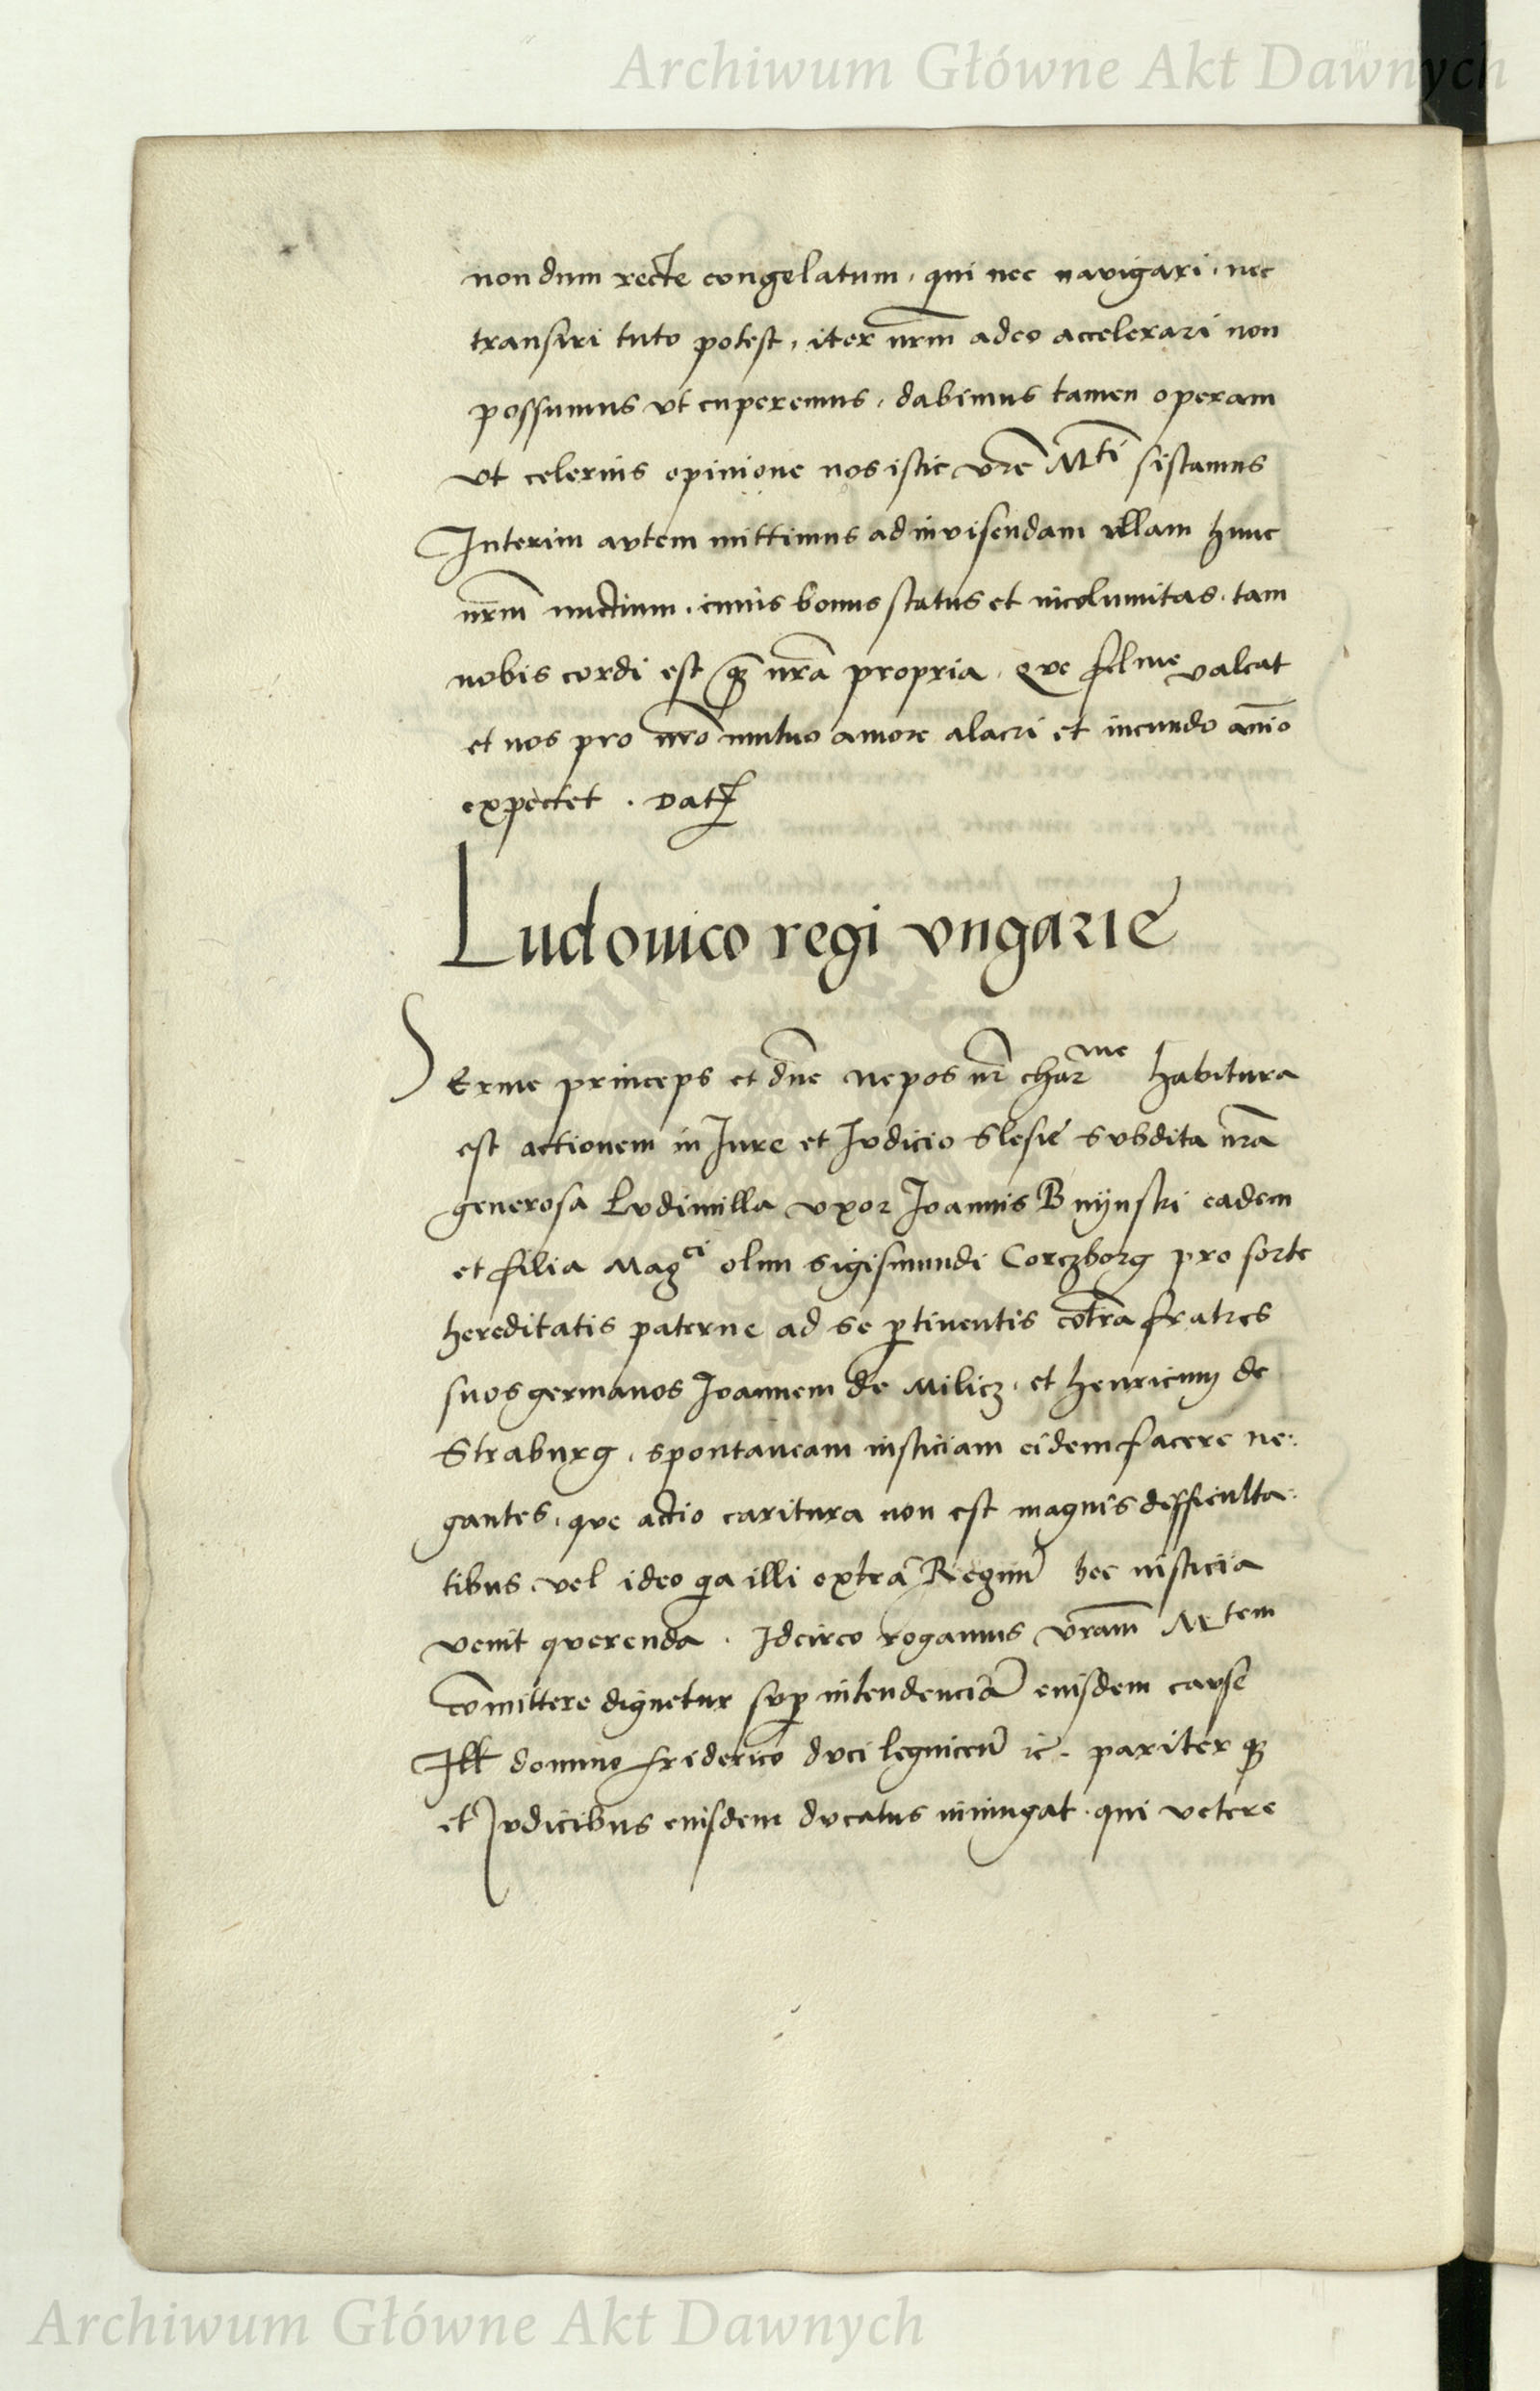 Archiwum Główne Akt Dawnych
nondum recte congelatum, qui nec navigari, nec
transiri tuto potest, iter nrm̄ adeo accelerari non
possumus vt cuperemus, dabimus tamen operam
vt celerius opinione nos istic vr̄e Mti sistamus
Interim avtem mittimus ad invisendam illam hunc
nrm̄ nuctium, cuius bonus status et incolumitas, tam
nobis cordi est qȝ nrā propria. Que felme valeat
et nos pro nrō mutuo amore alacri et iucundo anīo
expectet . Datȝ
Ludouico regi vngarie
Serme princeps et dn̄e nepos nr̄ charme habitura
est actionem in Iure et Ivdicio Slesie svbdita nrā
generosa Lvdimilla vxor Ioannis Bnÿnski eadem
et filia Magci olim Sigismundi Corczborg pro sorte
hereditatis paterne ad se ꝑtinentis cōtra fratres
suos germanos Ioannem de Milicz, et Henricum de
Straburg, spontaneam iusticiam eidem facere ne:
gantes, que actio caritura non est magnis difficulta:
tibus, vel ideo qa illi extra Regnū hec iusticia
venit qverenda . Idcirco rogamus vram̄ Mtem
cōmittere dignetur svꝑ intendenciā euisdem cavse
Ill domino friderico dvci legnicen̄ ꝛc . pariter qȝ
et Ivdicibus euisdem dvcatus iniungat, qui vetere
Archiwum Główne Akt Dawnych